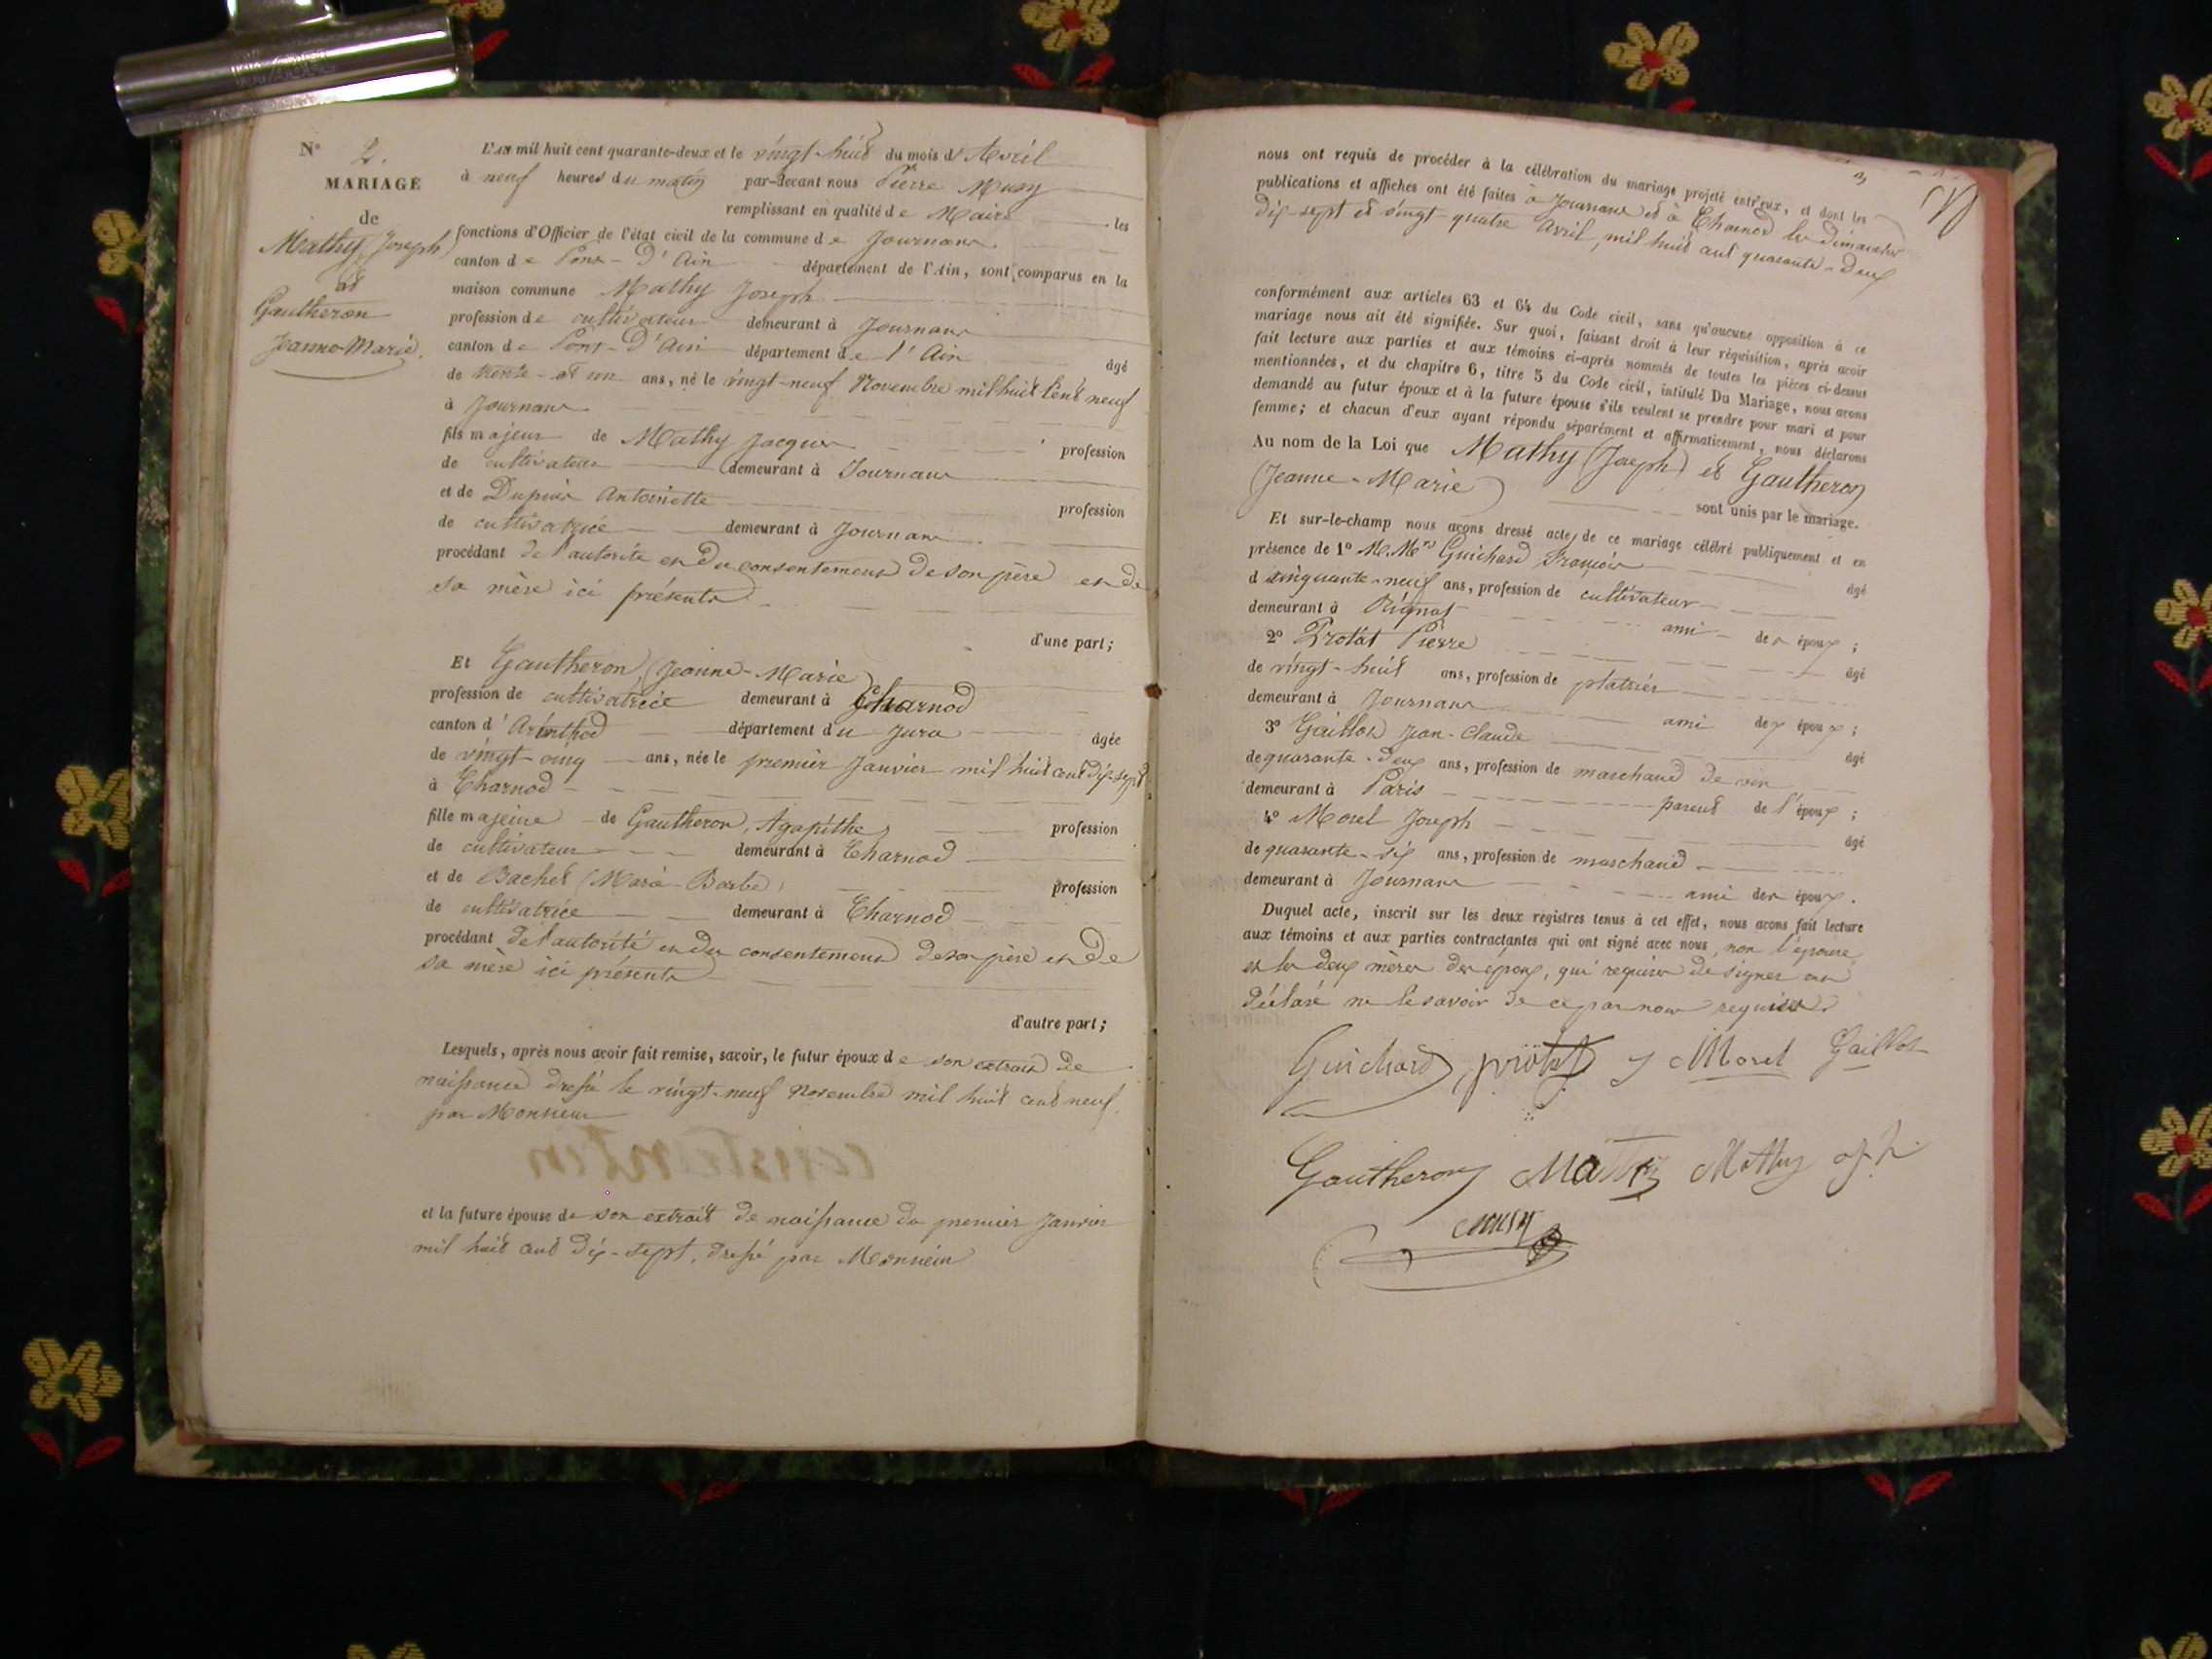 N° 2.
MARIAGE
de
Mathy, Joseph
et
Gautheron
Jeanne-Marie.
L'an mil huit cent quarante-deux et le vingt-huit du mois d'Avril
à neuf heures du matin par-devant nous Pierre Musy
remplissant en qualité de Maire les
fonctions d'Officier de l'état civil de la commune de Journans
canton de Pont-D'Ain département de l'Ain, sont comparus en la
maison commune Mathy Joseph
profession de cultivateur demeurant à Journans
canton de Pont-D'Ain département de l'Ain âgé
de trente-et un ans, né le vingt-neuf Novembre mil huit Cent neuf
à Journans
fils majeur de Mathy Jacques profession
de cultivateur demeurant à Journans
et de Dupuis Antoinette profession
de cultivatrice demeurant à Journans
procédant de l'autorité et du consentement de son père et de
sa mère ici présents
d'une part;
Et Gautheron, (Jeanne-Marie)
profession de cultivatrice demeurant à Charnod
canton d'Arinthod département du Jura âgée
de vingt-cinq ans, née le premier Janvier mil huit cent dix-sept
à Charnod
fille majeure de Gautheron, Agapithe, profession
de cultivateur demeurant à Charnod
et de Bachet (Marie-Barbe) profession
de cultivatrice demeurant à Charnod
procédant de l'autorité et du consentement de son père et de
sa mère ici présents
d'autre part;
Lesquels, après nous avoir fait remise, savoir, le futur époux de son extrait de
naissance dressé le vingt-neuf Novembre mil huit cent neuf
par Monsieur
et la future épouse de son extrait de naissance du premier Janvier
mil huit cent dix-sept, dressé par Monsieur
3
nous ont requis de procéder à la célébration du mariage projeté entr'eux, et dont les
publications et affiches ont été faites à Journans et à Charnod les dimanches
dix-sept et vingt-quatre Avril, mil huit cent quarante-deux
conformément aux articles 63 et 64 du Code civil, sans qu'aucune opposition à ce
mariage nous ait été signifiée. Sur quoi, faisant droit à leur réquisition, après avoir
fait lecture aux parties et aux témoins ci-après nommés de toutes les pièces ci-dessus
mentionnées, et du chapitre 6, titre 5 du Code civil, intitulé Du Mariage, nous avons
demandé au futur époux et à la future épouse s'ils veulent se prendre pour mari et pour
femme; et chacun d'eux ayant répondu séparément et affirmativement, nous déclarons
Au nom de la Loi que Mathy (Joseph) et Gautheron
(Jeanne-Marie) sont unis par le mariage.
Et sur-le-champ nous avons dressé acte de ce mariage célébré publiquement et en
présence de 1° M.Mrs Guichard François âgé
d cinquante-neuf ans, profession de cultivateur
demeurant à Rignat ami des époux;
2° Protat Pierre âgé
de vingt-huit ans, profession de platrier
demeurant à Journans ami des époux;
3° Gaillot Jean-Claude âgé
de quarante-deux ans, profession de marchand de vin
demeurant à Paris parent de l'époux;
4° Morel Joseph âgé
de quarante-six ans, profession de marchand
demeurant à Journans ami des époux.
Duquel acte, inscrit sur les deux registres tenus à cet effet, nous avons fait lecture
aux témoins et aux parties contractantes qui ont signé avec nous, non l'épouse
et les deux mères des époux, qui requises de signer ont
déclaré ne le savoir de ce par nous requises.
Guichard protat J Morel Gaillot
Gautheron Mathy Mathy
musy